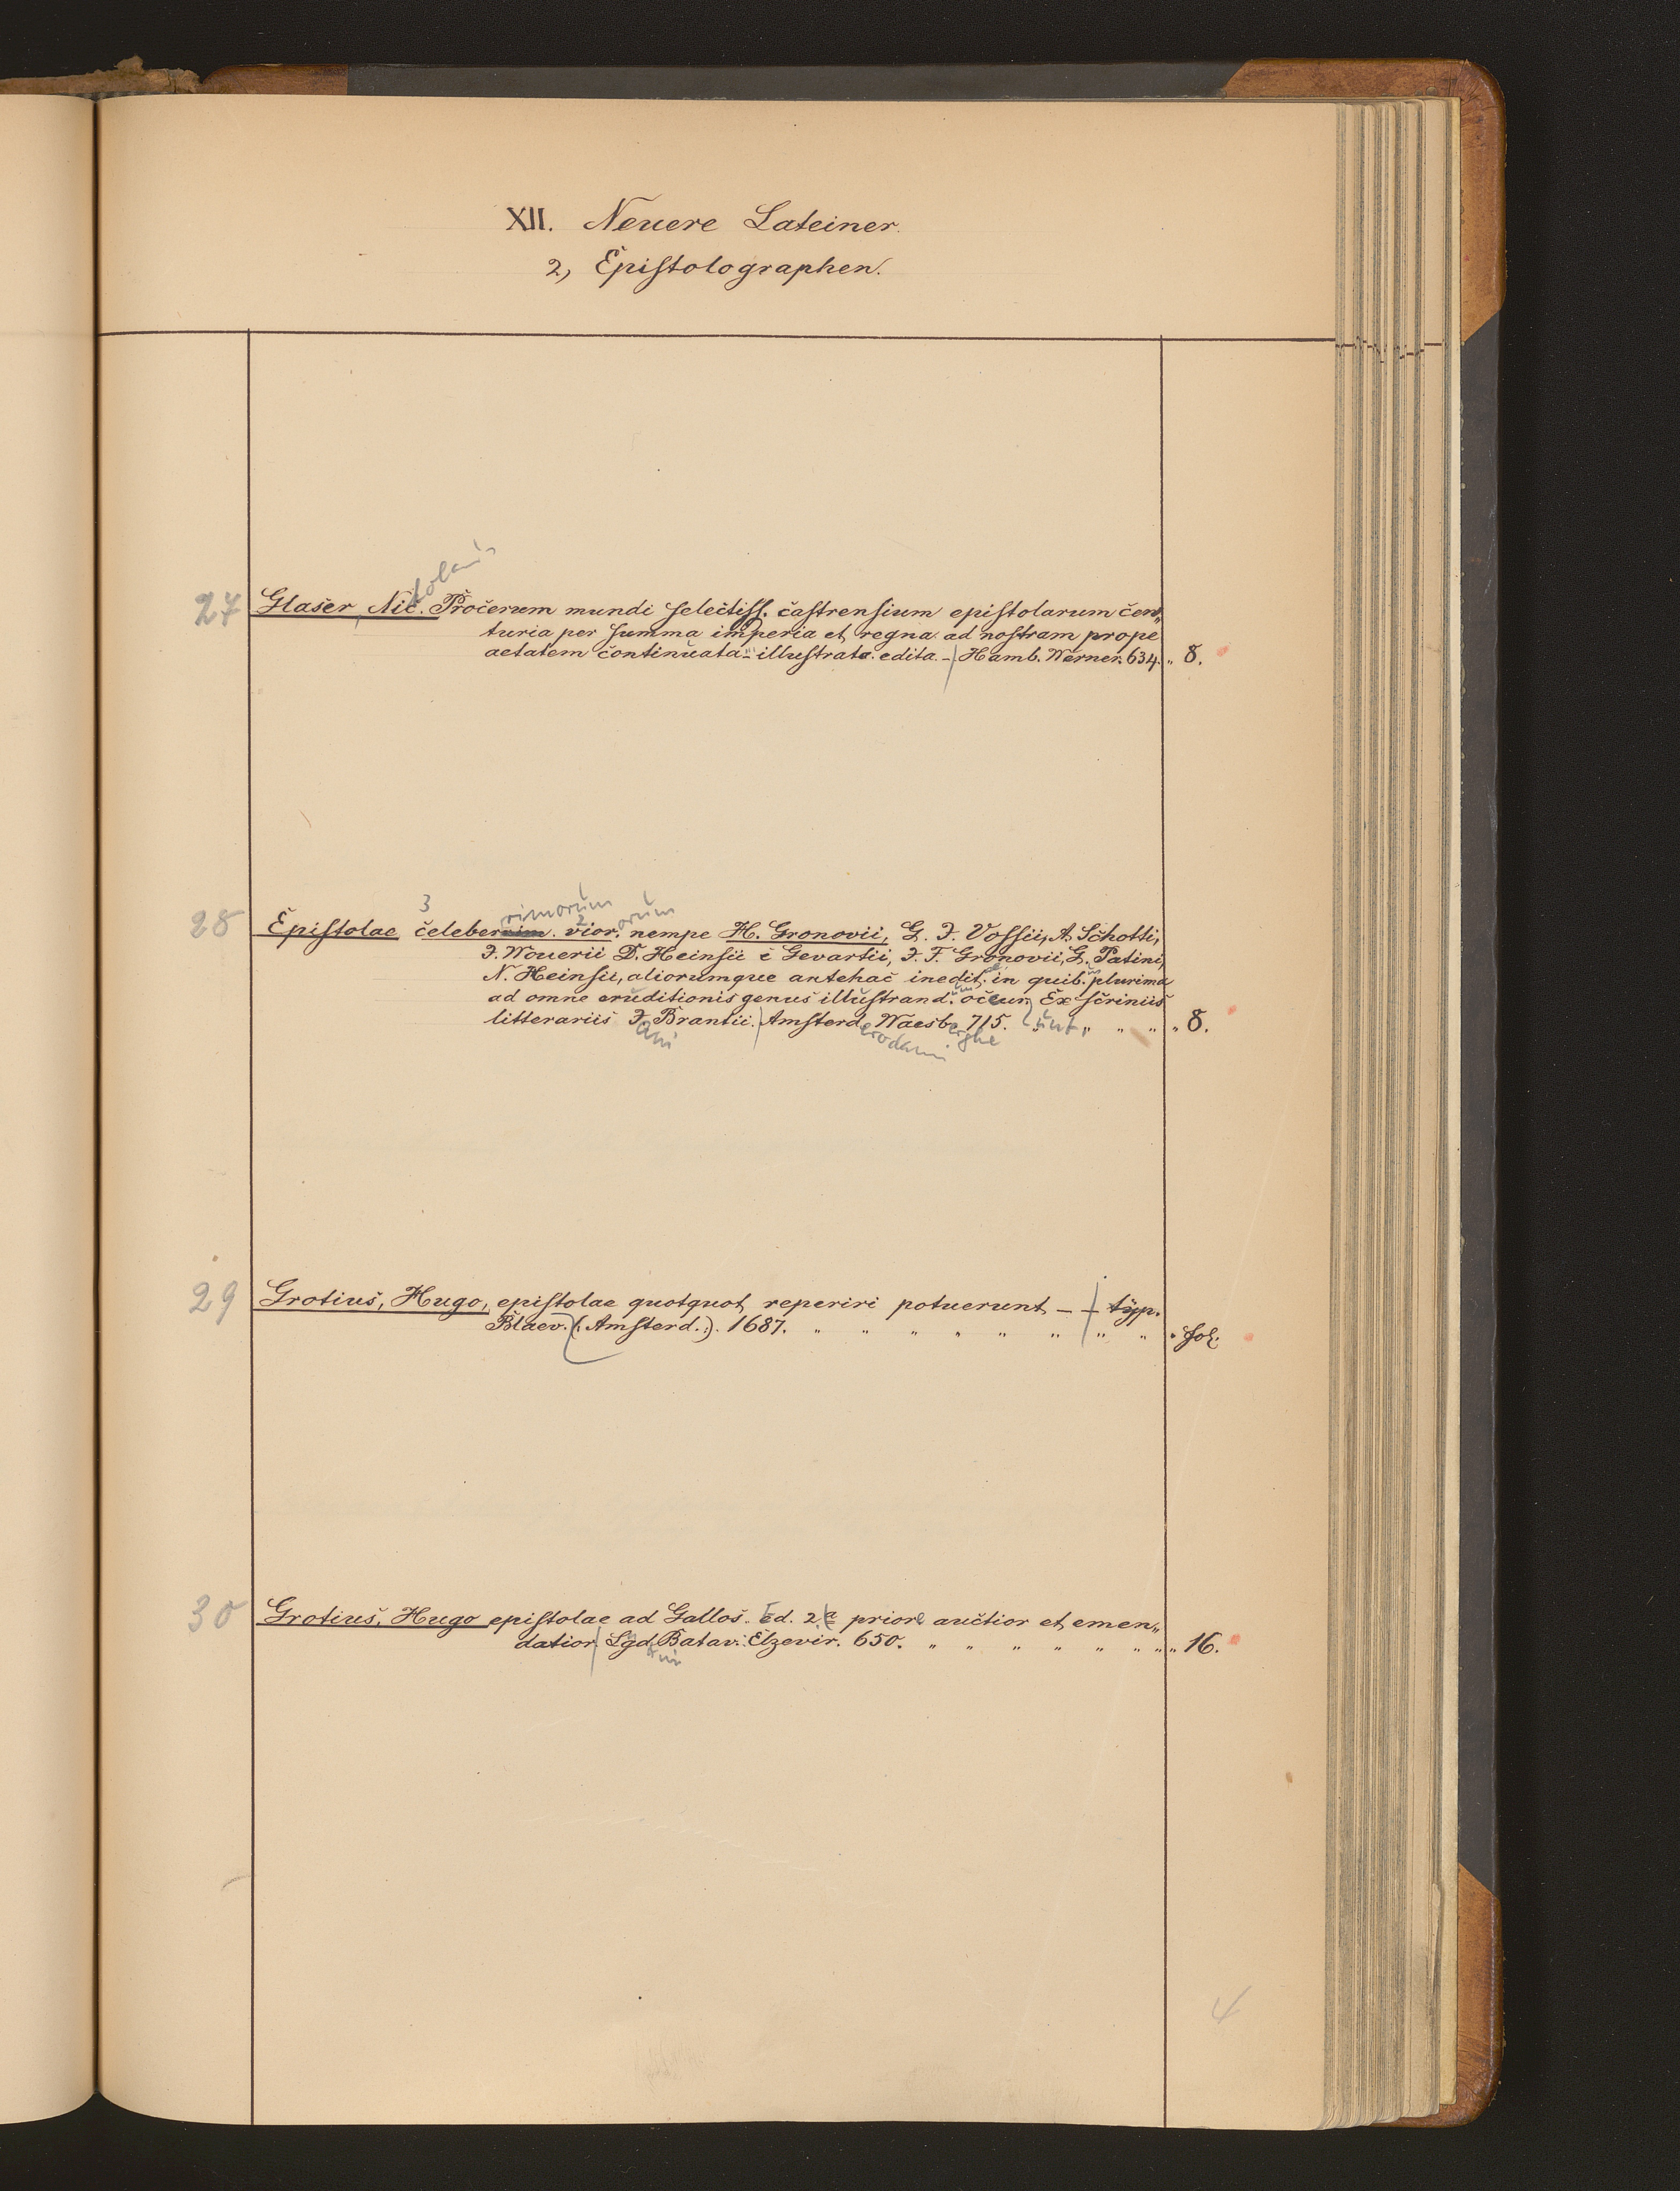 XII. Neuere Lateiner.
2, Epistolographen.
27 Glaser, Nic. Procerum mundi selectiss. castrensium epistolarum cen„
turia per summa imperia et regna ad nostram prope
aetatem continuata illustrata edita. – Hamb. Werner. 634. „ 8.
3 rimorum 2 orum
28 Epistolae celeberrim. vior. nempe H. Gronovii, G. J. Vossii, A. Schotti,
J. Wouerii D. Heinsii c Gevartii, J. F. Gronovii, G. Patini,
N. Heinsii, aliorumque antehac inedit. in quib. plurima
ad omne eruditionis genus illustrand. occur. Ex scriniis
litterariis J. Brantii. Amsterd. Waesb. 715. „ „ „ „ 8.
ani erodami erghe
29 Grotius, Hugo, epistolae quotquot reperiri potuerunt – – typ.
Blaev. (: Amsterd. :). 1687. „ „ „ „ „ „ „ „ „ fol.
30 Grotius, Hugo epistolae ad Gallos. Ed. 2a priore auctior et emen„
datior. Lgd. Batav. Elzevir. 650. „ „ „ „ „ „ „ „ 16.
4